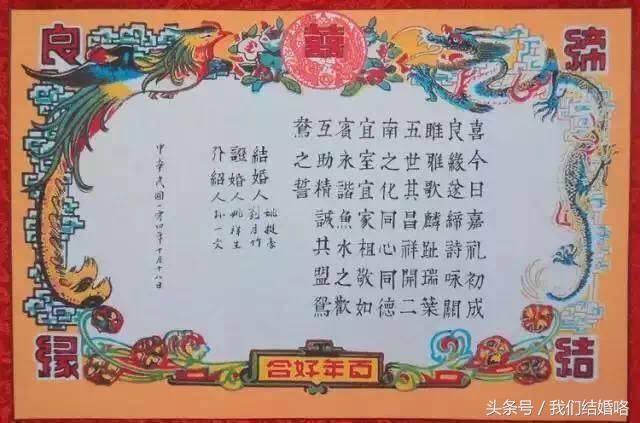 囍
締結
良緣
喜今日嘉礼初成
良緣遂締詩咏關
雎雅歌麟趾瑞葉
五世其昌祥開二
南之化同心同德
宜室宜家相敬如
賓永諧魚水之歡
互助精誠共盟鴛
鴦之誓
結婚人
劉月竹
證婚人 姚祥生
介紹人 孙一文
中華民國一零四年十月十八日
百年好合
头条号 / 我们结婚咯